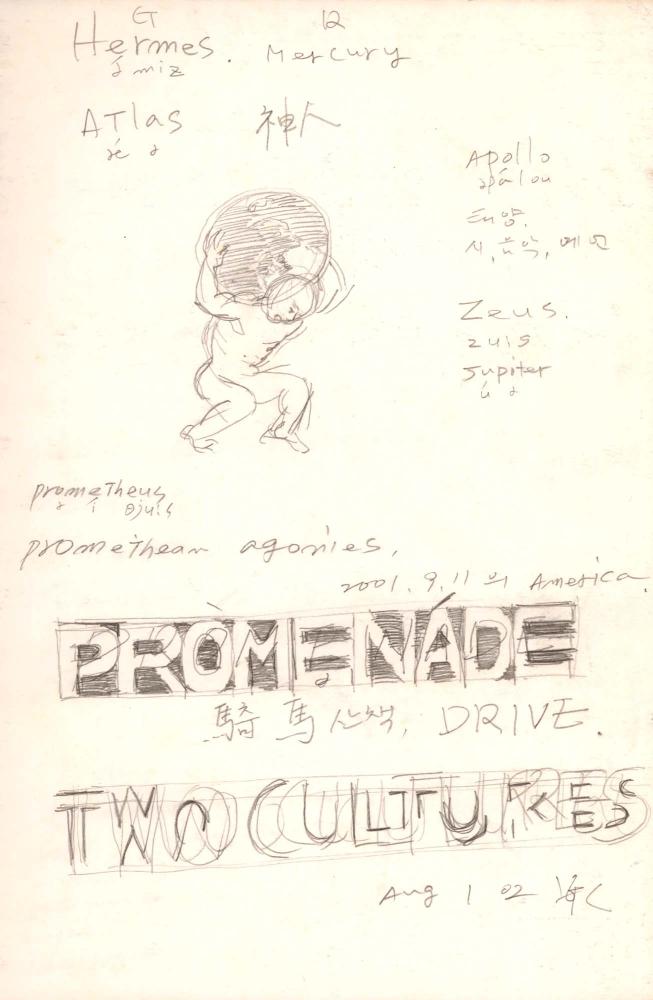 G
R
Hermes. Mercury
ə́ miz
ATlas 神人
æ ə
Apollo
əpálou
태양.
시, 음악, 예언
Zeus.
zuis
Jupiter
ú ə
promeTheus
ə í θjuis
promethean agonies,
2001. 9. 11 의 America.
PRÒMENÁDE
ə
騎馬 산책, DRIVE.
TWO CULTURES
Aug 1 02